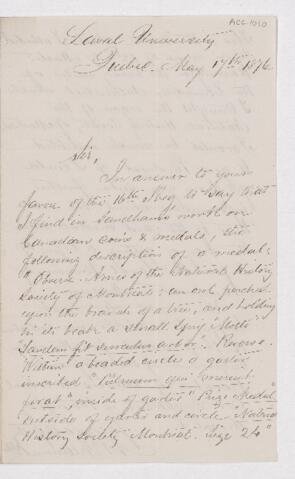 ACC 1010
Laval University
Quebec May 17th 1876
Sir,
In answer to your
favor of the 16th I beg to say that
I find in Sandham's work on
Canadian coins & medals, the
following description of a medal:
"Obverse. Arms of the Natural History
Society of Montreal: an owl perched
upon the branch of a tree, and holding
in its beak a small sprig Motto
"Tandem fit surculus arbor". Reverse.
Within a beaded circle a garter
inscribed "Palmam qui meruit
ferat", inside of garter "Prize Medal"
outside of garter and circle "Natural
History Society Montreal. Size 24"